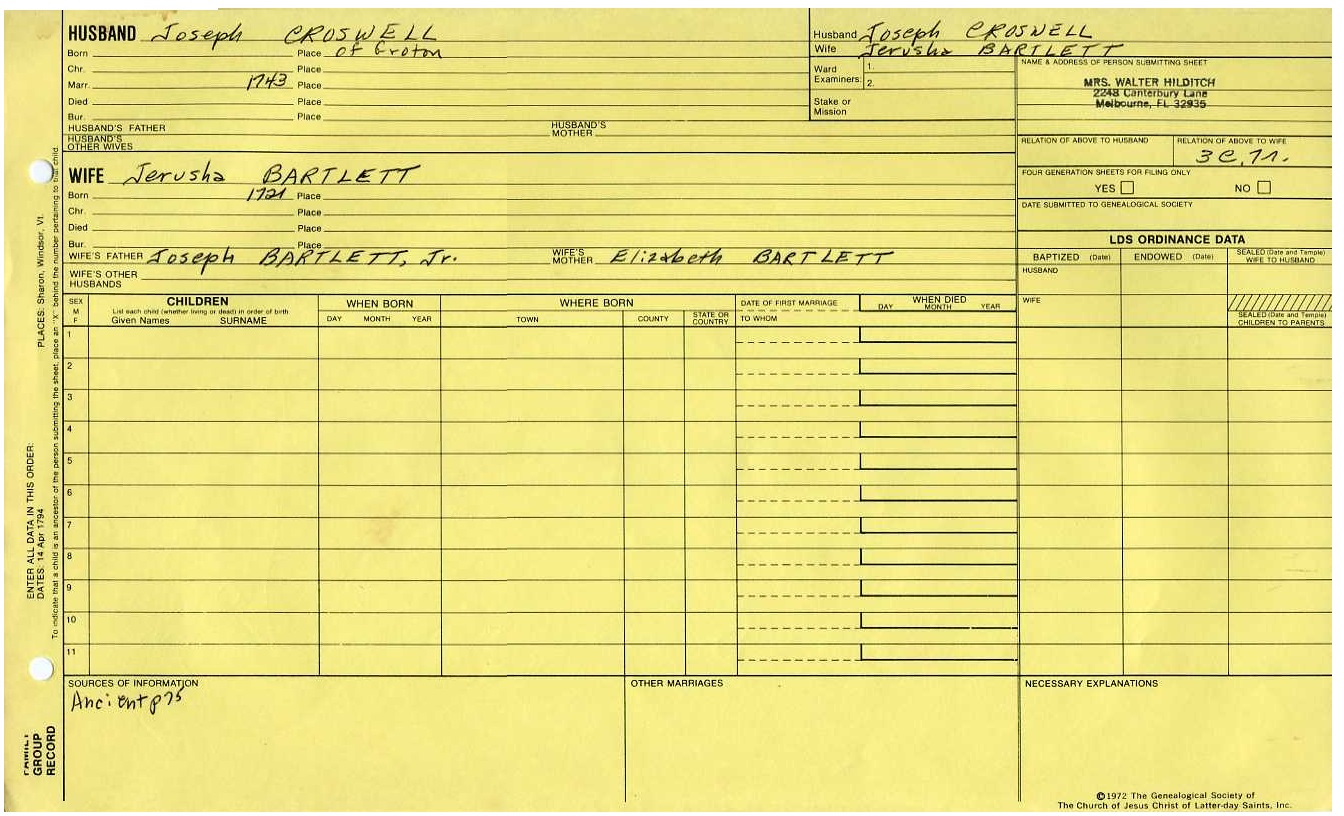 HUSBAND Joseph CROSWELL
Born Place of Groton
Chr. Place
Marr. 1743 Place
Died Place
Bur. Place
HUSBAND'S FATHER HUSBAND'S MOTHER
HUSBAND'S OTHER WIVES
WIFE Jerusha BARTLETT
Born 1721 Place
Chr. Place
Died Place
Bur. Place
WIFE'S FATHER Joseph BARTLETT, Jr. WIFE'S MOTHER Elizabeth BARTLETT
WIFE'S OTHER HUSBANDS
Husband Joseph CROSWELL
Wife Jerusha BARTLETT
Ward Examiners: 1.
2.
Stake or Mission
NAME & ADDRESS OF PERSON SUBMITTING SHEET
MRS. WALTER HILDITCH
2248 Canterbury Lane
Melbourne, FL 32935
RELATION OF ABOVE TO HUSBAND RELATION OF ABOVE TO WIFE
FOUR GENERATION SHEETS FOR FILING ONLY
YES NO
DATE SUBMITTED TO GENEALOGICAL SOCIETY
LDS ORDINANCE DATA
BAPTIZED (Date) ENDOWED (Date) SEALED (Date and Temple) WIFE TO HUSBAND
HUSBAND
WIFE
SEALED (Date and Temple) CHILDREN TO PARENTS
SEX M F
CHILDREN
List each child (whether living or dead) in order of birth
Given Names SURNAME
WHEN BORN
DAY MONTH YEAR
WHERE BORN
TOWN COUNTY STATE OR COUNTRY
DATE OF FIRST MARRIAGE
TO WHOM
WHEN DIED
DAY MONTH YEAR
1
2
3
4
5
6
7
8
9
10
11
SOURCES OF INFORMATION
Ancient p75
OTHER MARRIAGES
NECESSARY EXPLANATIONS
©1972 The Genealogical Society of
The Church of Jesus Christ of Latter-day Saints, Inc.
ENTER ALL DATA IN THIS ORDER:
DATES: 14 Apr 1794 PLACES: Sharon, Windsor, Vt.
To indicate that a child is an ancestor of the person submitting the sheet, place an "X" behind the number pertaining to that child.
FAMILY
GROUP
RECORD